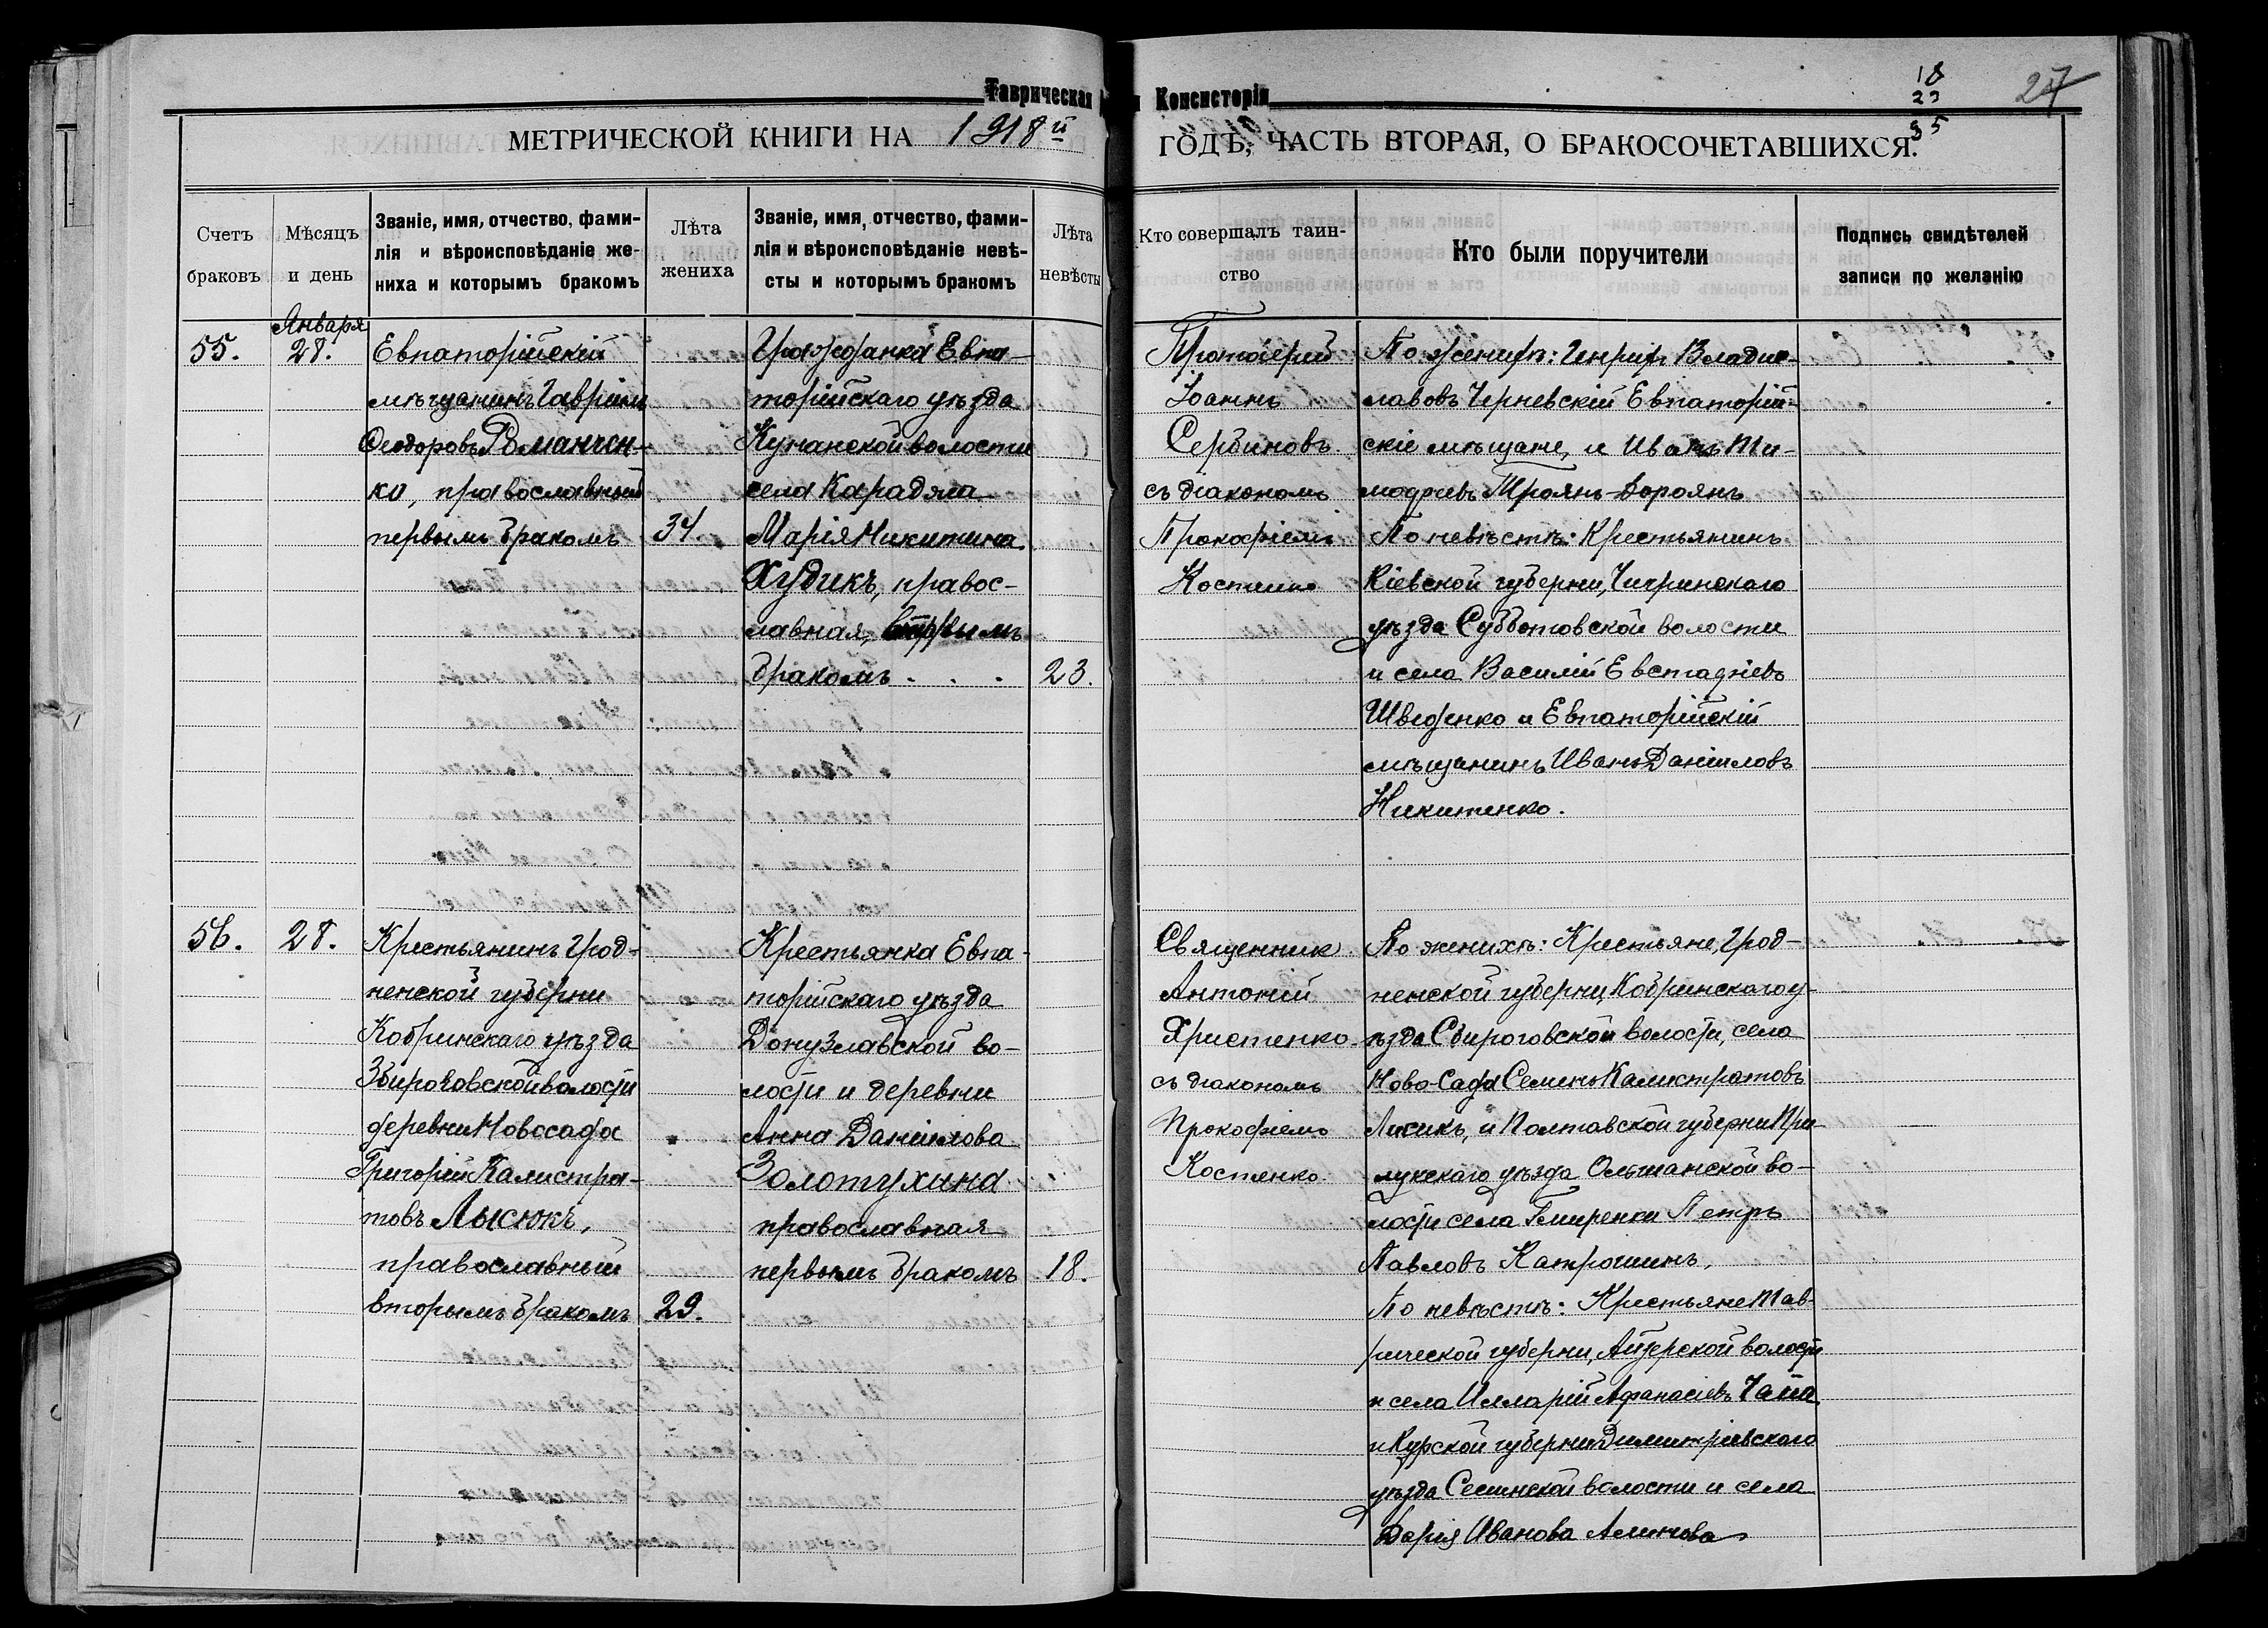 Таврическая Консисторіи
18
23
35
27
МЕТРИЧЕСКОЙ КНИГИ НА 1918й ГОДЪ, ЧАСТЬ ВТОРАЯ, О БРАКОСОЧЕТАВШИХСЯ.
Счетъ браковъ
Мѣсяцъ и день
Званіе, имя, отчество, фами-
лія и вѣроисповѣданіе же-
ниха и которымъ бракомъ
Лѣта жениха
Званіе, имя, отчество, фами-
лія и вѣроисповѣданіе невѣ-
сты и которымъ бракомъ
Лѣта невѣсты
Кто совершалъ таин-
ство
Кто были поручители
Подпись свидѣтелей
записи по желанію
55.
Января
28.
Евпаторійскій
мѣщанинъ Гавріилъ
Ѳеодоровъ Романчен-
ко, православный
первымъ бракомъ
34.
Гражданка Евпа-
торійскаго уѣзда
Кунанской волости
села Караджа
Марія Никитина
Худикъ, правос-
лавная,
бракомъ . . .
23.
Протоіерей
Іоаннъ
Сербиновъ
съ діакономъ
Прокофіемъ
Костенко
По жениху: Генрихъ Владис-
лавовъ Черневскій Евпаторій-
скіе мѣщане, и Иванъ Ти-
моѳеевъ Троянъ-Дороянъ
По невѣстѣ: Крестьянинъ
Кіевской губерни, Чигринскаго
уѣзда Субботовской волости
и села Василій Евстафіевъ
Шведенко и Евпаторійскій
мѣщанинъ Иванъ Даніиловъ
Никитенко.
56.
28.
Крестьянинъ Грод-
ненской губерни
Кобринскаго уѣзда
Збироговской волости
деревни Новосада
Григорій Калистра-
товъ Лысюкъ,
православный
вторымъ бракомъ
29.
Крестьянка Евпа-
торійскаго уѣзда
Донузлавской во-
лости и деревни
Анна Даніилова
Золотухина
православная
первымъ бракомъ
18.
Священник
Антоній
Христенко
съ діакономъ
Прокофіемъ
Костенко.
По женихѣ: Крестьяне, Грод-
ненской губерни, Кобринскаго у-
ѣзда Сбироговской волости, села
Ново-Сада Семенъ Калистратовъ
Лисикъ, и Полтавской губерни При-
лукскаго уѣзда Ольшанской во-
лости села Гмиренки Петръ
Павловъ Катрошинъ,
По невѣстѣ: Крестьяне Тав-
рической губерни, волости
и села Илларій Афанасіевъ Чапа
и Курской губерни Димитріевскаго
уѣзда волости и села
Дарія Иванова